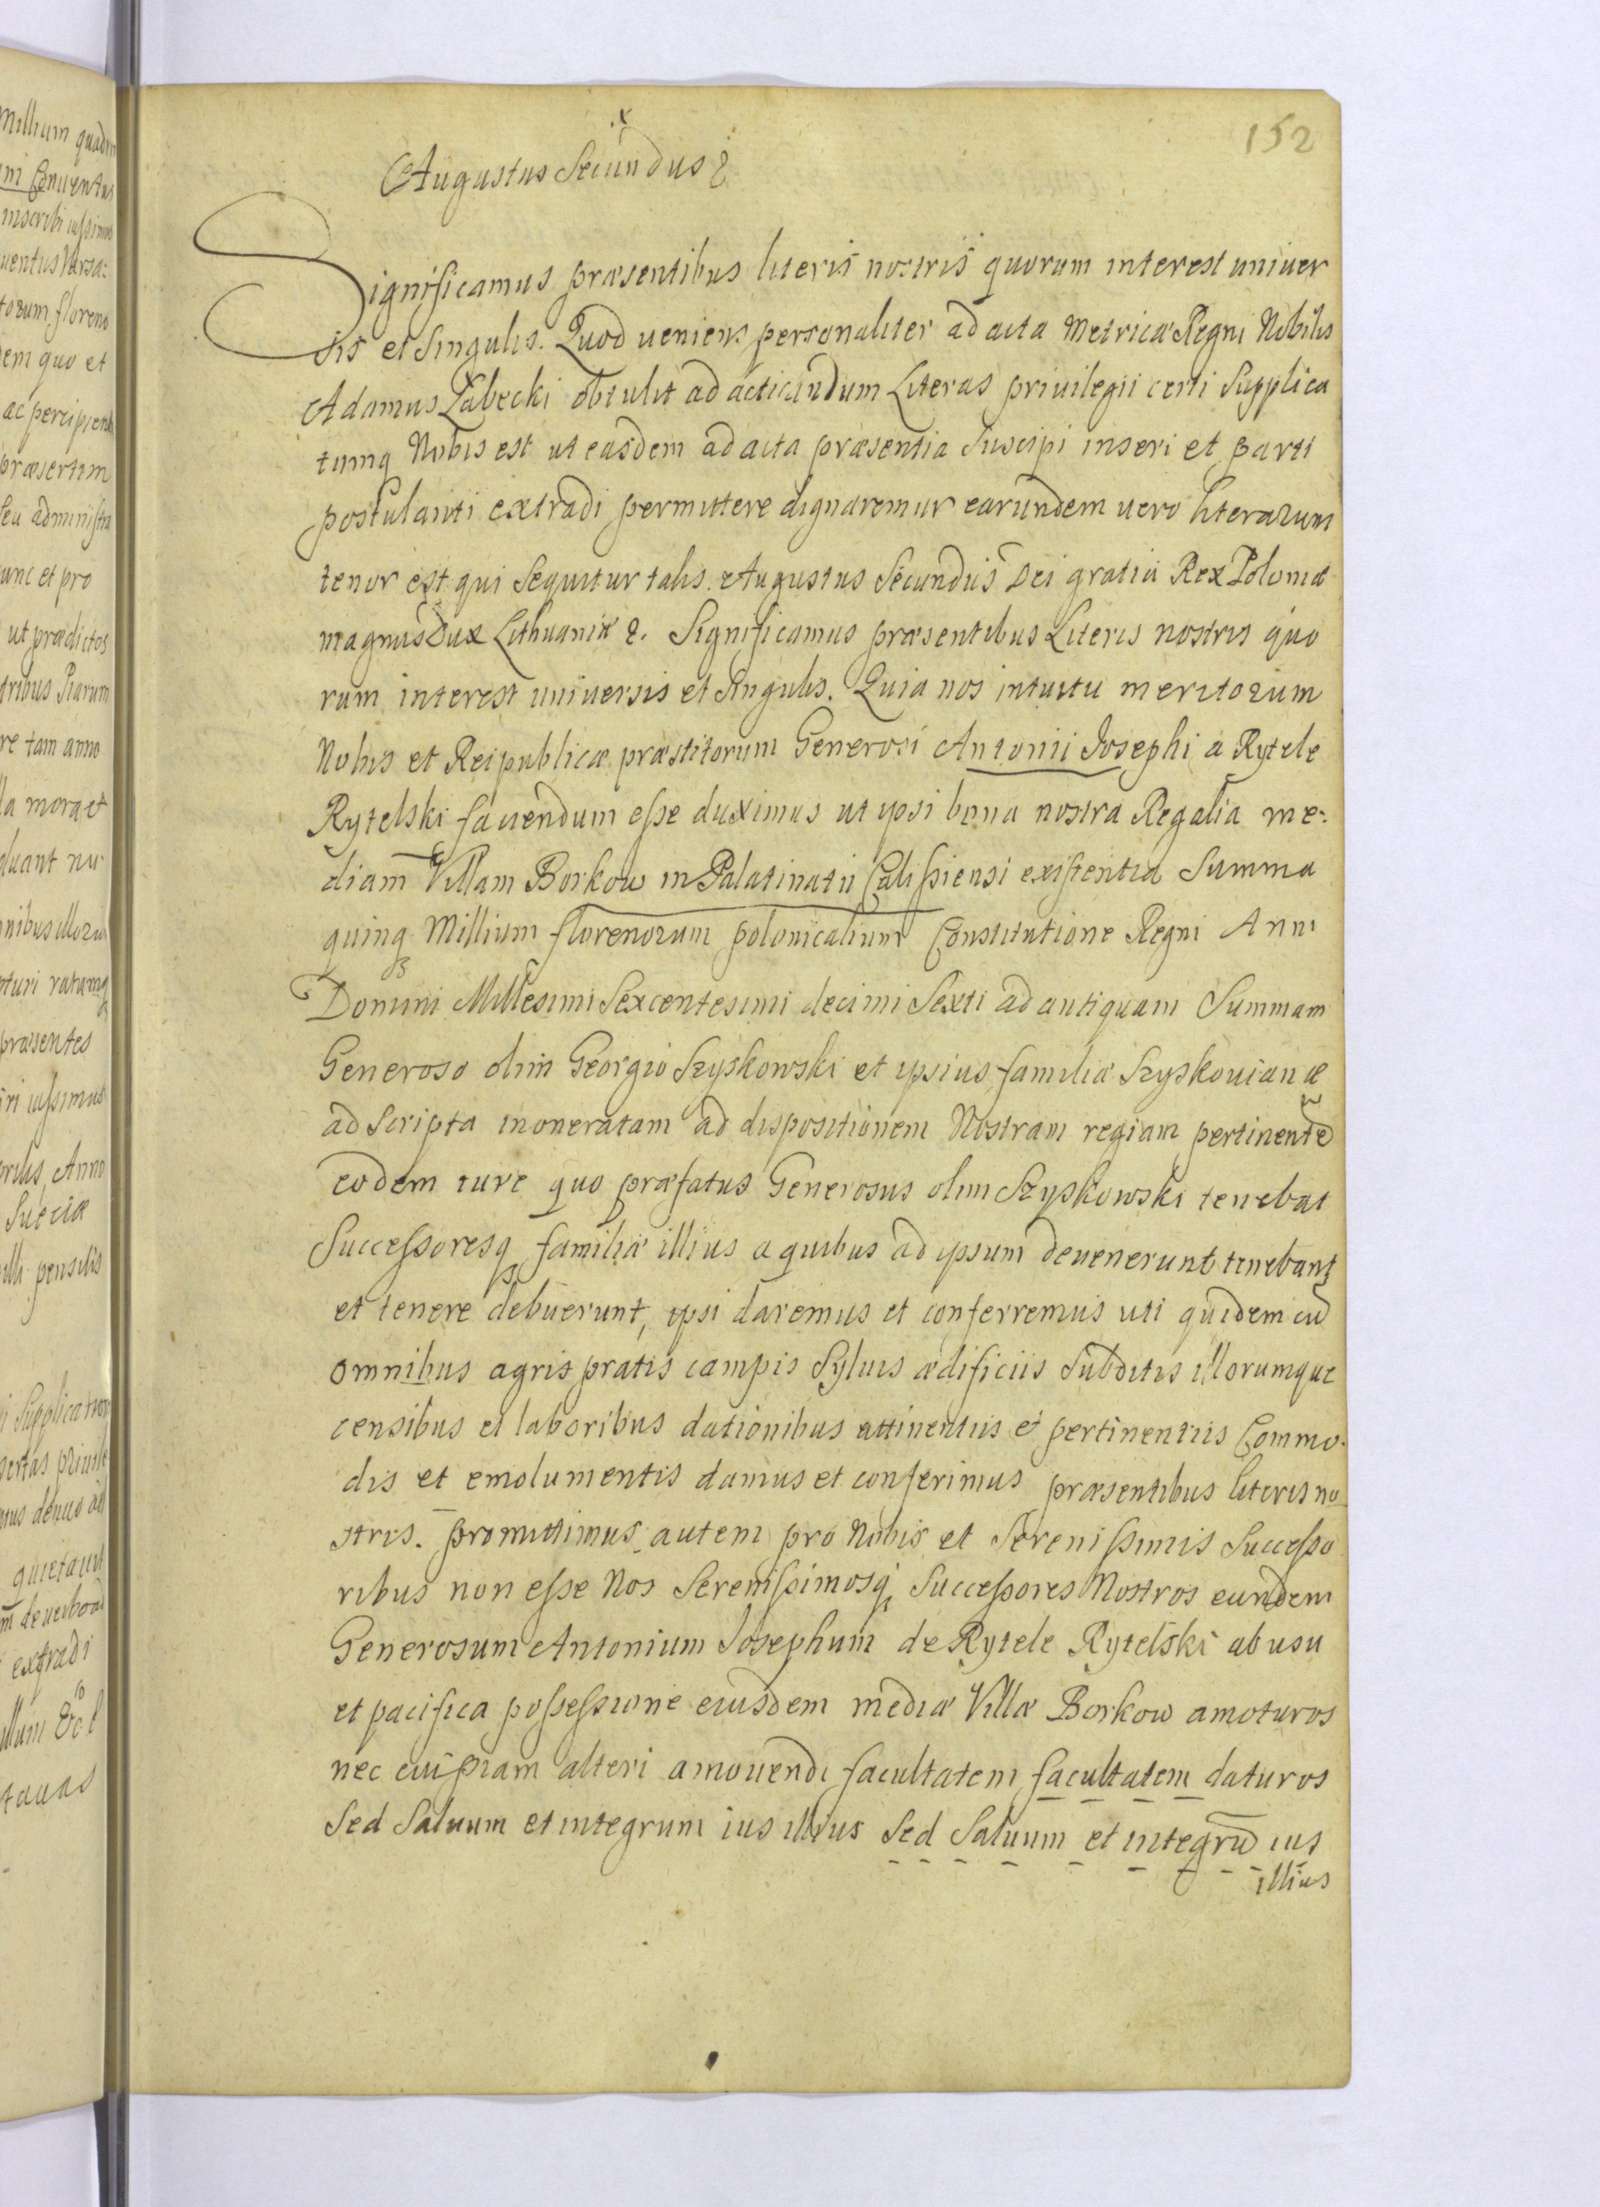 152
Augustus Secundus &
Significamus præsentibus literis nostris quorum interest univer
sis et Singulis. Quod veniens personaliter ad acta Metricæ Regni Nobilis
Adamus Zabecki obtulit ad acticandum Literas privilegii certi Supplica
tumq Nobis est ut easdem ad acta præsentia Suscipi inseri et parti
postulanti extradi permittere dignaremur earundem vero literarum
tenor est qui Sequitur talis. Augustus Secundus Dei gratia Rex Poloniæ
magnus Dux Lithuaniæ &. Significamus præsentibus Literis nostris quo
rum interest universis et Singulis. Quia nos intuitu meritorum
Nobis et Reipublicæ præstitorum Generosi Antonii Josephi a Rytele
Rytelski favendum esse duximus ut ypsi bona nostra Regalia me:
diam Villam Borkow in Palatinatu Calissiensi existentia Summa
quinq Millium florenorum polonicalium Constitutione Regni Anni
Domini Millesimi Sexcentesimi decimi Sexti ad antiquam Summam
Generoso olim Georgio Szyskowski et ypsius familiæ Szyskovianæ
ad Scripta inoneratam ad dispositionem Nostram regiam pertinente
eodem iure quo præfatus Generosus olim Szyskowski tenebat
Successoresq familiæ illius a quibus ad ypsum devenerunt tenebant
et tenere debuerunt, ypsi daremus et conferremus uti quidem cu
omnibus agris pratis campis Sylvis ædificiis Subditis illorumque
censibus et laboribus dationibus attinentiis et pertinentiis Commo-
dis et emolumentis damus et conferimus præsentibus literis no
stris. Promittimus autem pro Nobis et Serenissimis Successo
ribus non esse Nos Serenissimosq Successores Nostros eundem
Generosum Antonium Josephum de Rytele Rytelski ab usu
et pacifica possessione eiusdem mediæ Villæ Borkow amoturos
nec cuipiam alteri amovendi facultatem facultatem daturos
Sed Salvum et integrum ius illius Sed Salvum et integru ius
illius